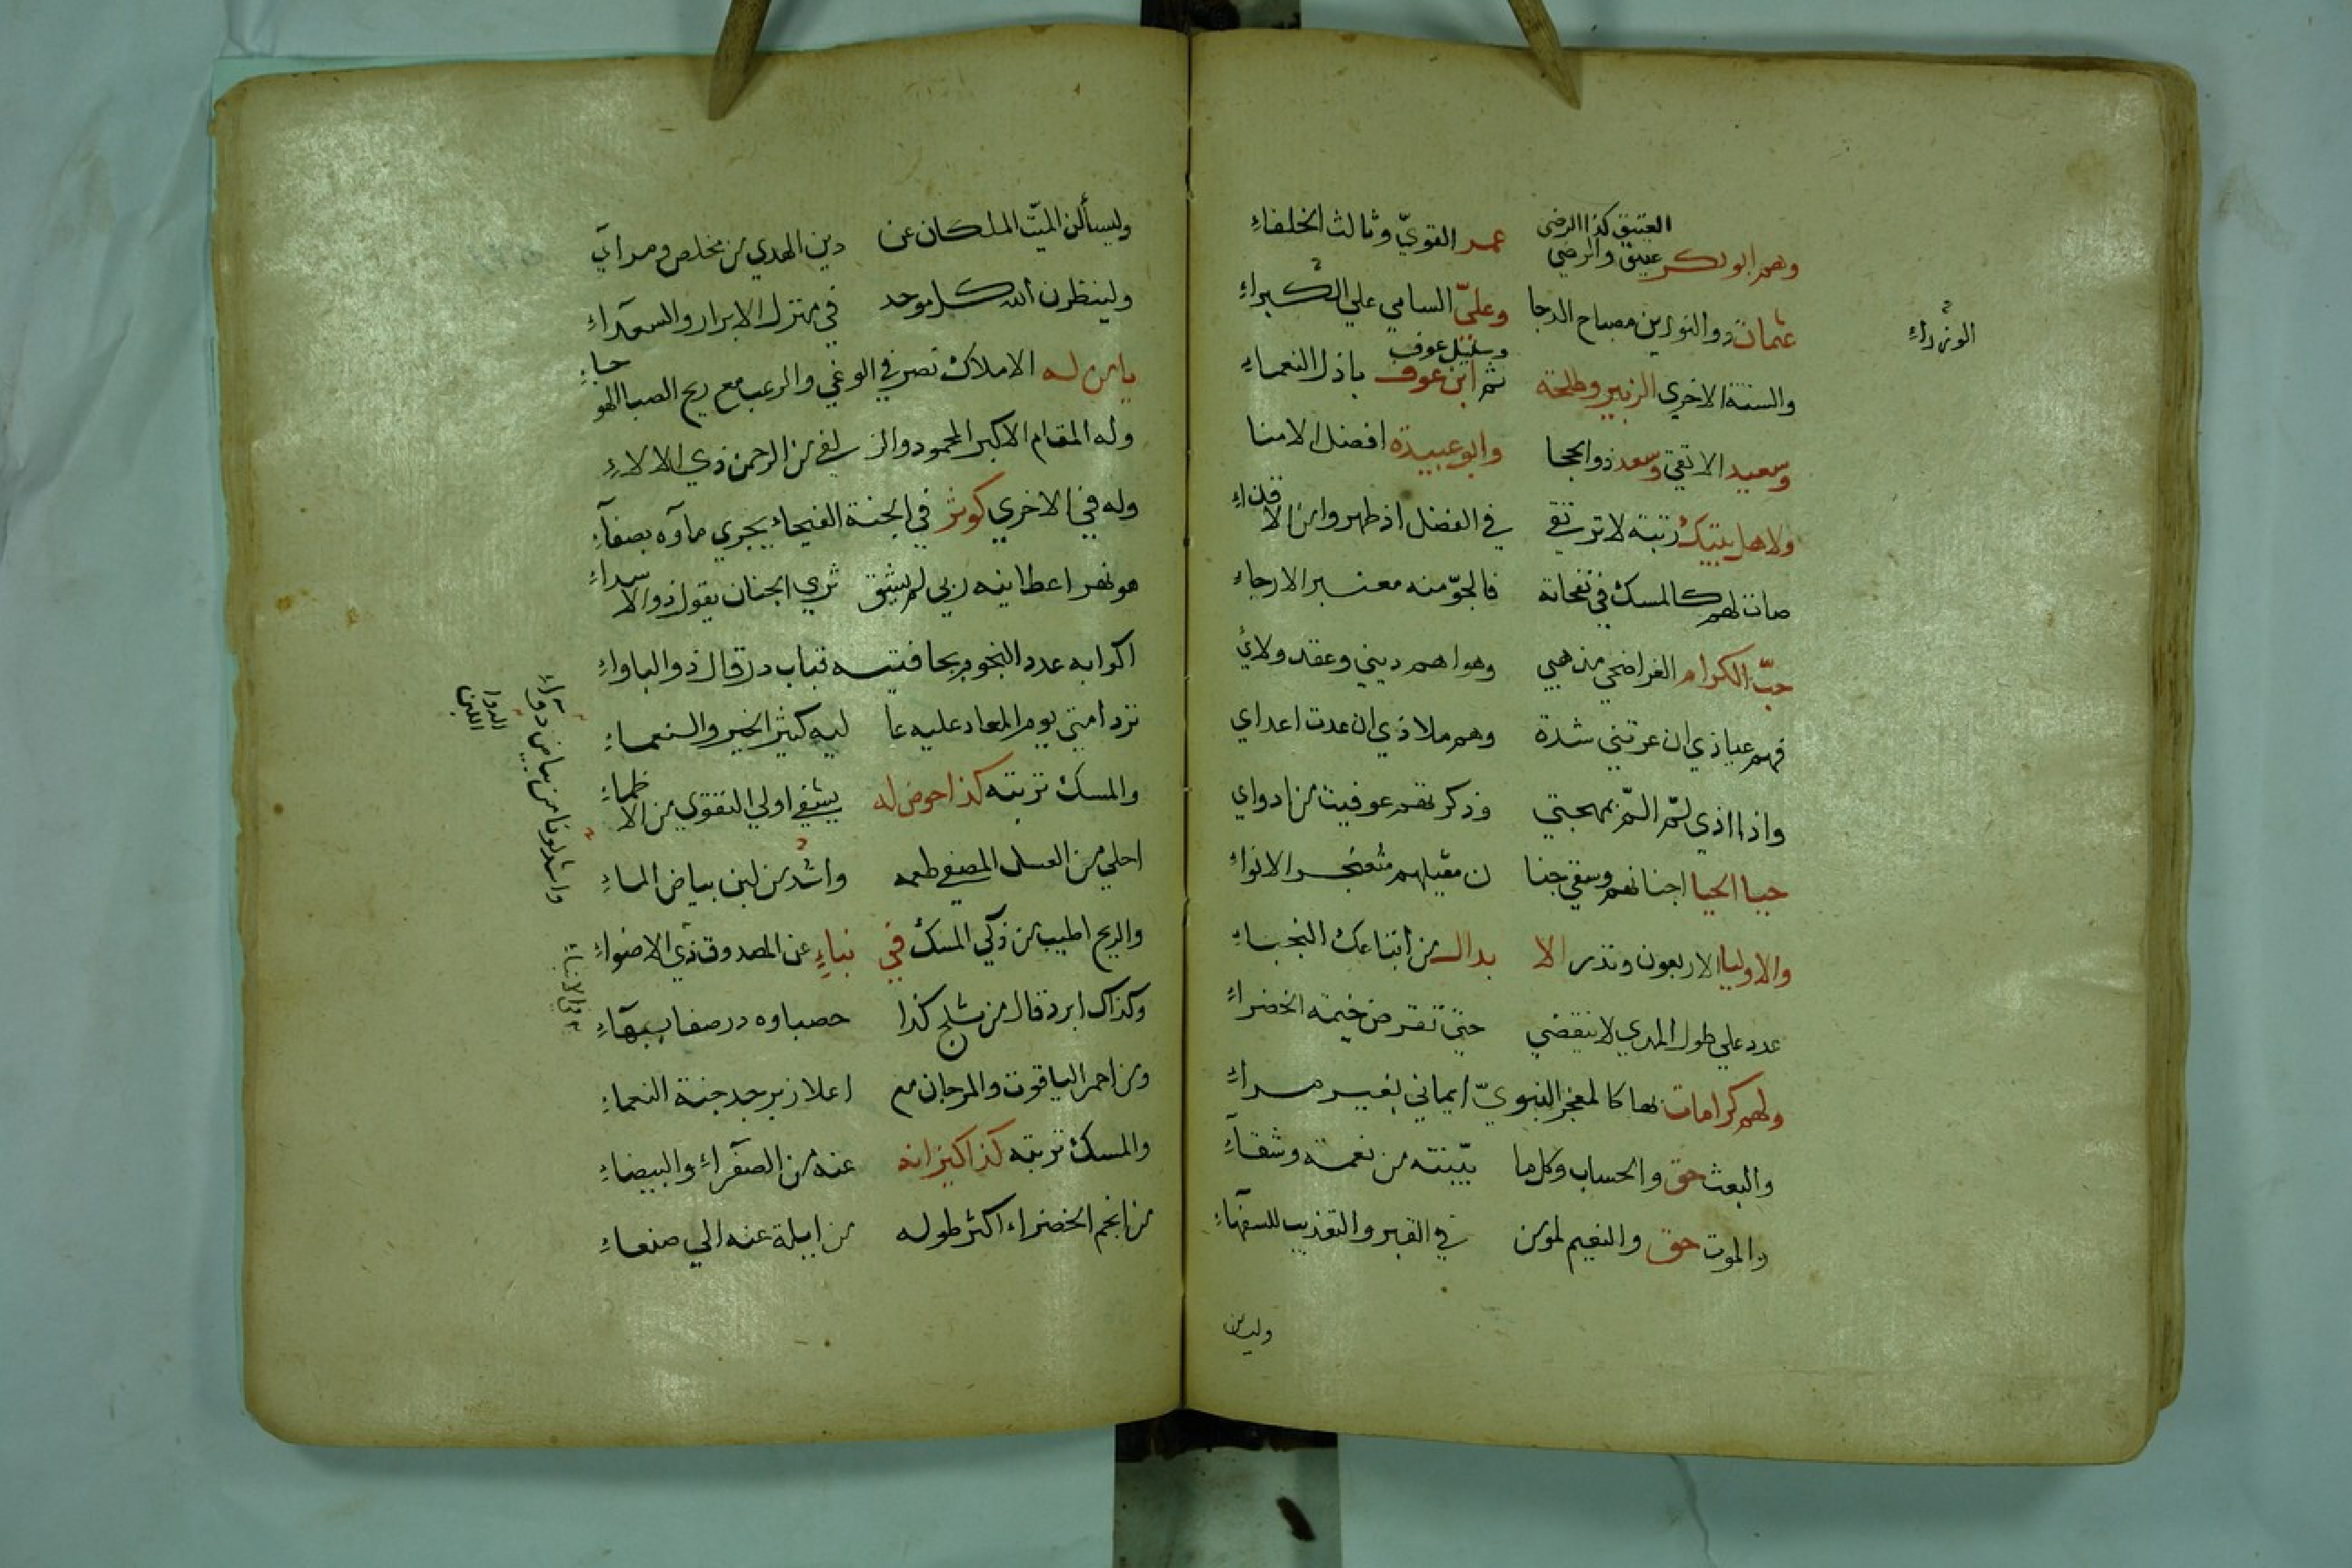 العتيق كذا الرضى
وهم ابو بكر عتيق والرضي عمر القويّ وثالث الخلفاءِ
عثمان ذو النورين مصباح الدجا وعليّ السامي علي الكبراءِ
الوزراءِ
وسليل عوف
والستة الاخري الزبير وطلحة ثم ابن عوف باذل النعماءِ
وسعيد الاتقي وسعد ذو الحجا وابو عبيدة افضل الامنا
ولاهل بيتك رتبة لا ترتقي في الفضل اذ طهروا من الاقذاءِ
صات لهم كالمسك في نفحاته فالجوّ منه معنبر الارجاءِ
حبّ الكرام الغر اضحي مذهبي وهواهم ديني وعقد ولائي
فهم عياذي ان عرتني شدة وهم ملاذي ان عدت اعداي
واذا اذي لمّ المّ بمهجتي وذكرتهم عوفيت من ادواي
حبا الحيا اجنانهم وسقي جنا ن مقيلهم مثعنجر الانواءِ
والاوليا الاربعون وتذر الا بدال من اتباعك النجباءِ
عدد علي طول المدي لا ينقضي حتي تقرض خيمة الخضراءِ
ولهم كرامات بها كالمعجز النبويّ ايماني بغير مراءِ
والبعث حق والحساب وكل ما بيّنته من نعمة وشقاءِ
والموت حق والنعيم لمومن في القبر والتعذيب للسفهاءِ
وليسألن
وليسألن الميّت الملكان عن دين الهدي من مخلص ومرآي
ولينظرن الله كل موحد في منزل الابرار والسعدآءِ
يا من له الاملاك تصر في الوغي والرعب مع ريح الصبا الهوجاءِ
وله المقام الاكبر المحمود والز لفي من الرحمن ذي الالاءِ
وله في الاخري كوثر في الجنة الفيحاء يجري مآوه بصفآءِ
هو نهر اعطانيه ربي لم يشق ثري الجنان يقول ذو الاسراءِ
اكوابه عدد النجوم بحافتيه قباب در قال ذو الباواءِ
ترد امتي يوم المعاد عليه عا ليه كثير الخير والنعماءِ
والمسك تربته كذا حوض له يشفي اولي التقوي من الاظماءِ
احلي من العسل المصفي طعمه واشد من لبن بياض الماءِ
واشد لونا من بياض دوآءِ
الدوا اللبن
والريح اطيب من ذكي المسك في نباءٍ عن المصدوق ذي الاضواءِ
الانباءِ
وكذاك ابرد قال من ثلج كذا حصباوه در صفا ببهآءِ
ومن احمر الياقوت والمرجان مع اعلا زبرجد جنة النعماءِ
والمسك تربته كذا كيزانه عنه من الصفرآء والبيضاءِ
من انجم الخضراء اكثر طوله من ايلة عنه الي صنعاءِ